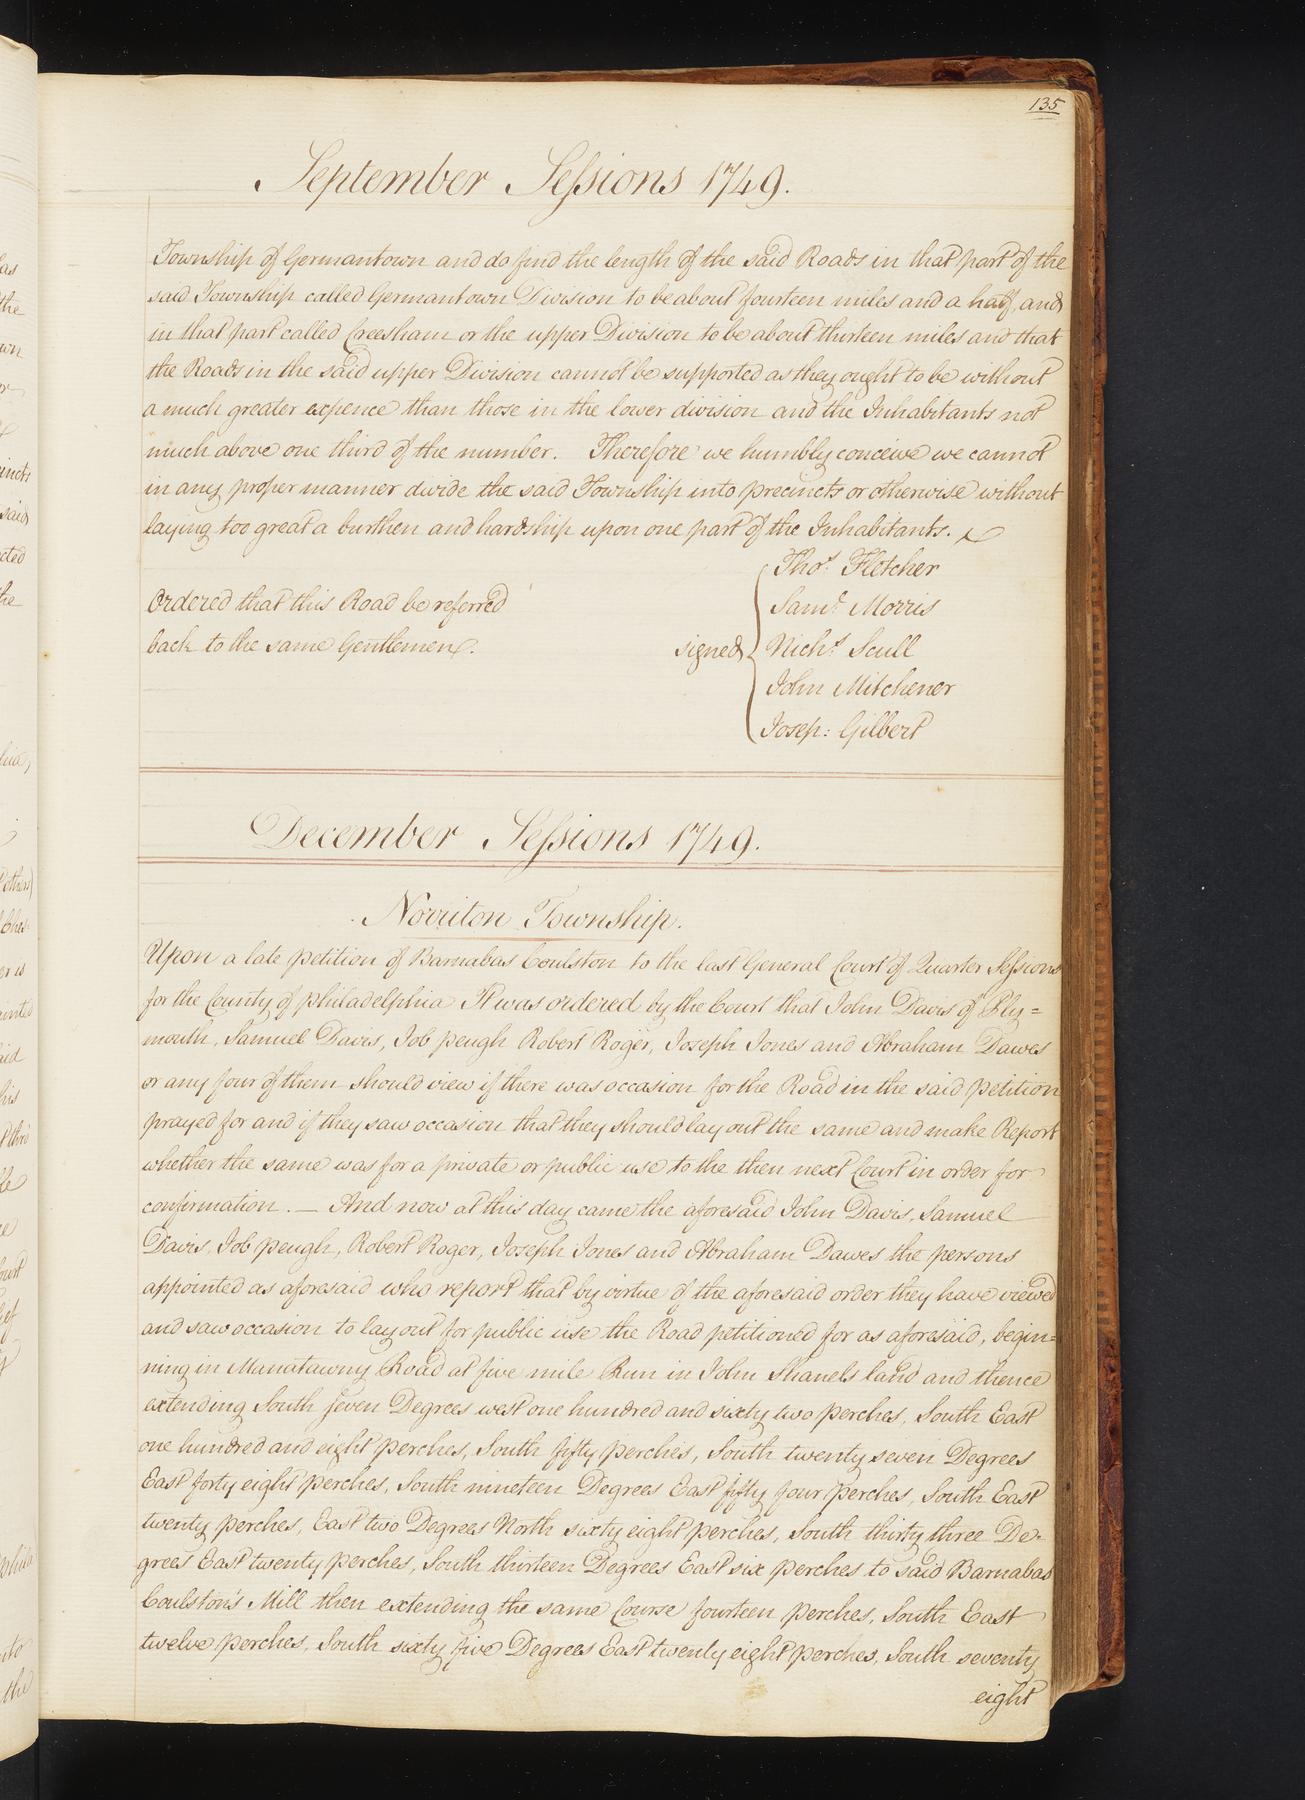 135
September Sessions 1749.
Township of Germantown and do find the length of the said Roads in that part of the
said Township called Germantown Division to be about fourteen miles and a half, and
in that part called Creesham or the upper Division to be about thirteen miles and that
the Roads in the said upper Division cannot be supported as they ought to be without
a much greater expence than those in the lower division and the Inhabitants not
much above one third of the number. Therefore we humbly conceive we cannot
in any proper manner divide the said Township into precincts or otherwise without
laying too great a burthen and hardship upon one part of the Inhabitants.
Thos. Fletcher
Ordered that this Road be referred
Saml. Morris
back to the same Gentlemen.
signed
Nichs. Scull
John Mitchener
Josep: Gilbert
December Sessions 1749.
Norriton Township.
Upon a late petition of Barnabas Coulston to the last General Court of Quarter Sessions
for the County of philadelphia It was ordered by the Court that John Davis of Ply=
mouth, Samuel Davis, Job pough Robert Roger, Joseph Jones and Abraham Dawes
or any four of them should view if there was occasion for the Road in the said petition
prayed for and if they saw occasion that they should lay out the same and make Report
whether the same was for a private or public use to the then next Court in order for
confirmation. — And now at this day came the aforesaid John Davis, Samuel
Davis, Job pough, Robert Roger, Joseph Jones and Abraham Dawes the persons
appointed as aforesaid who report that by virtue of the aforesaid order they have viewed
and saw occasion to lay out for public use the Road petitioned for as aforesaid, begin=
ning in Manatawny Road at five mile Run in John Shanels land and thence
extending South seven Degrees west one hundred and sixty two perches, South East
one hundred and eight perches, South fifty perches, South twenty seven Degrees
East forty eight perches, South nineteen Degrees East fifty four perches, South East
twenty perches, East two Degrees North sixty eight perches, South thirty three De-
grees East twenty perches, South thirteen Degrees East six perches to said Barnabas
Coulston's Mill then extending the same Course fourteen perches, South East
twelve perches, South sixty five Degrees East twenty eight perches, South seventy
eight